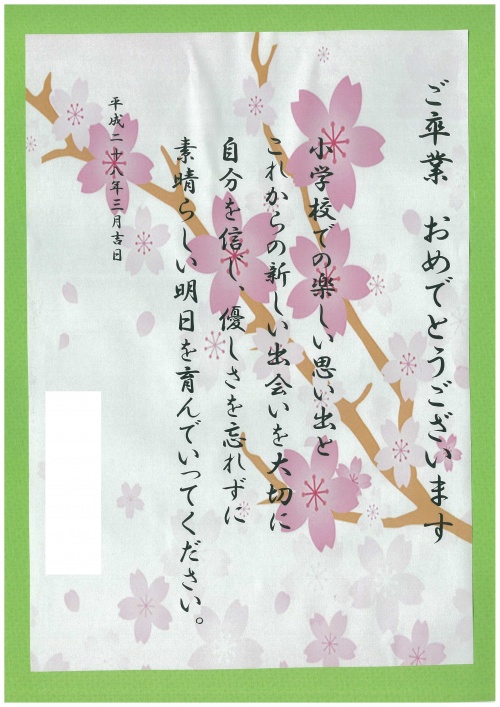 ご卒業　おめでとうございます
小学校での楽しい思い出と
これからの新しい出会いを大切に
自分を信じ、優しさを忘れずに
素晴らしい明日を育んでいってください。
平成二十八年三月吉日